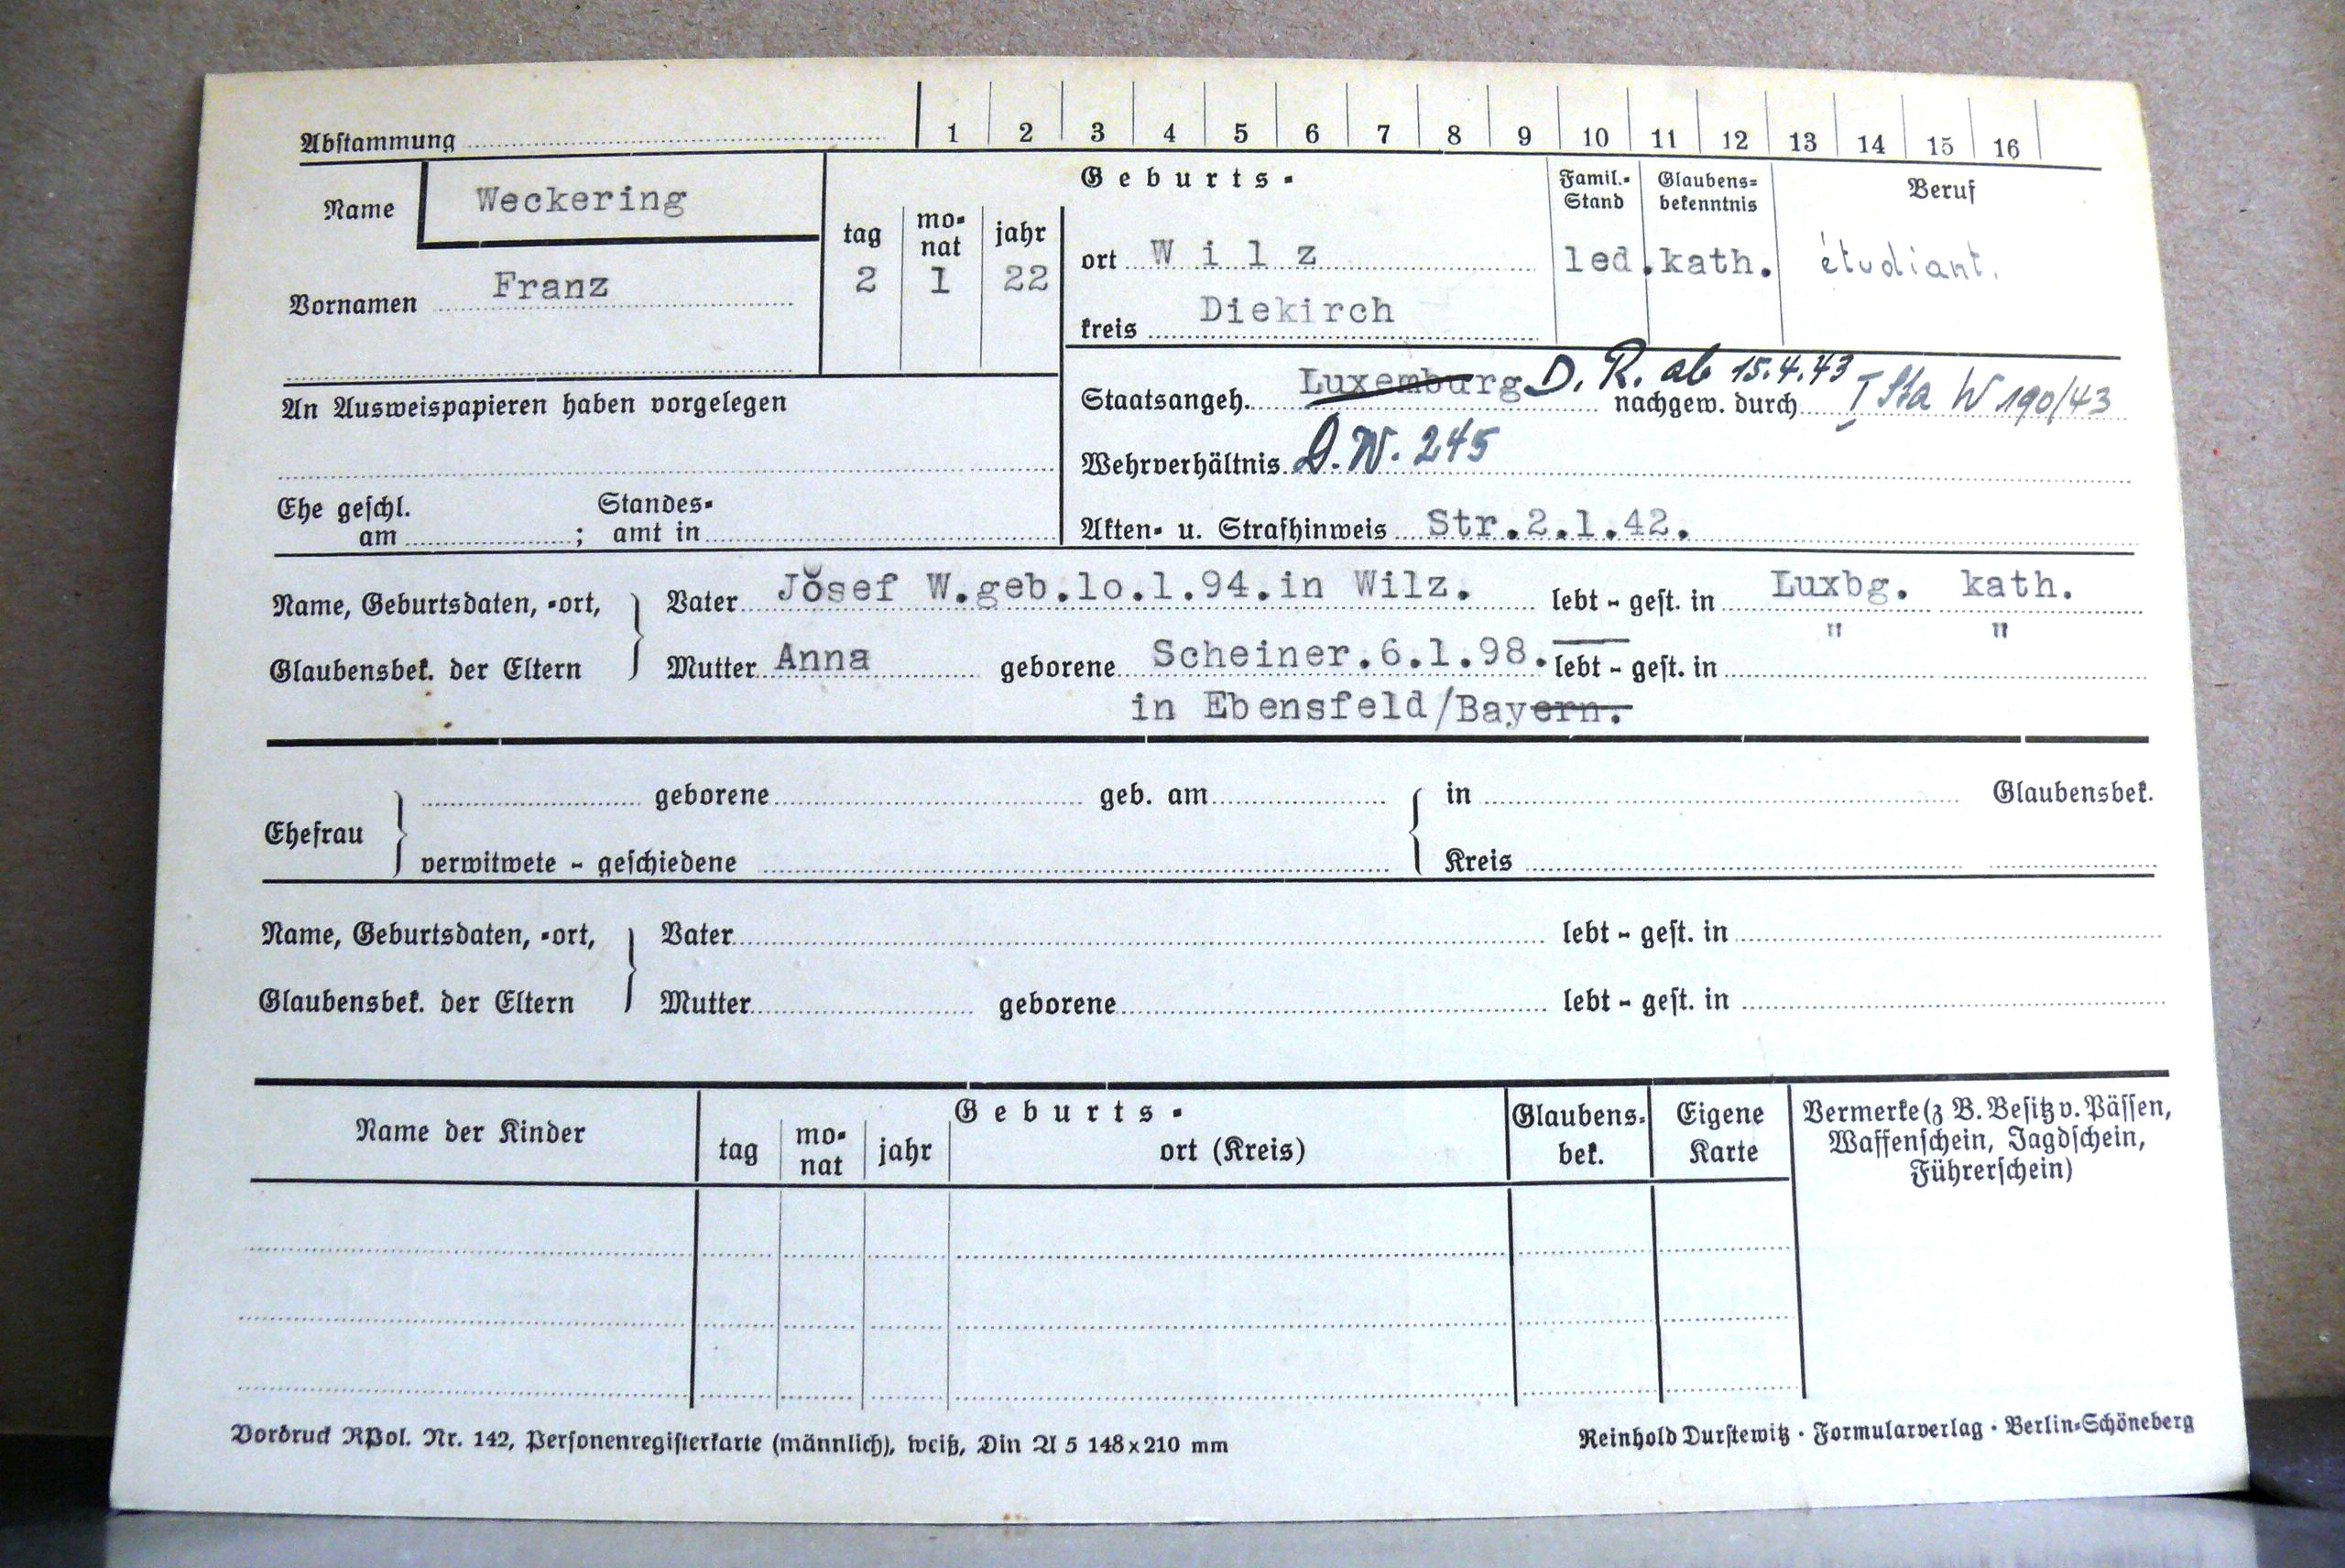 Abstammung 1 2 3 4 5 6 7 8 9 10 11 12 13 14 15 16
Name Weckering
Vornamen Franz
Geburts-
tag monat jahr
2 1 22
ort Wilz
kreis Diekirch
Famil.-Stand
led.
Glaubensbekenntnis
kath.
Beruf
étudiant.
An Ausweispapieren haben vorgelegen
Ehe geschl. am ; Standesamt in
Staatsangeh. Luxemburg D. R. ab 15.4.43 nachgew. durch I Sta W 190/43
Wehrverhältnis D. W. 245
Akten- u. Strafhinweis Str.2.1.42.
Name, Geburtsdaten, -ort,
Glaubensbek. der Eltern
Vater Josef W.geb.lo.1.94.in Wilz. lebt - gest. in Luxbg. kath.
Mutter Anna geborene Scheiner.6.1.98. lebt - gest. in " "
in Ebensfeld/Bayern.
Ehefrau
geborene geb. am in Glaubensbek.
verwitwete - geschiedene Kreis
Name, Geburtsdaten, -ort,
Glaubensbek. der Eltern
Vater lebt - gest. in
Mutter geborene lebt - gest. in
Name der Kinder
Geburts-
tag monat jahr ort (Kreis)
Glaubens-
bek.
Eigene
Karte
Vermerke (z B. Besitz v. Pässen,
Waffenschein, Jagdschein,
Führerschein)
Vordruck RPol. Nr. 142, Personenregisterkarte (männlich), weiß, Din A 5 148x210 mm
Reinhold Durstewitz · Formularverlag · Berlin-Schöneberg